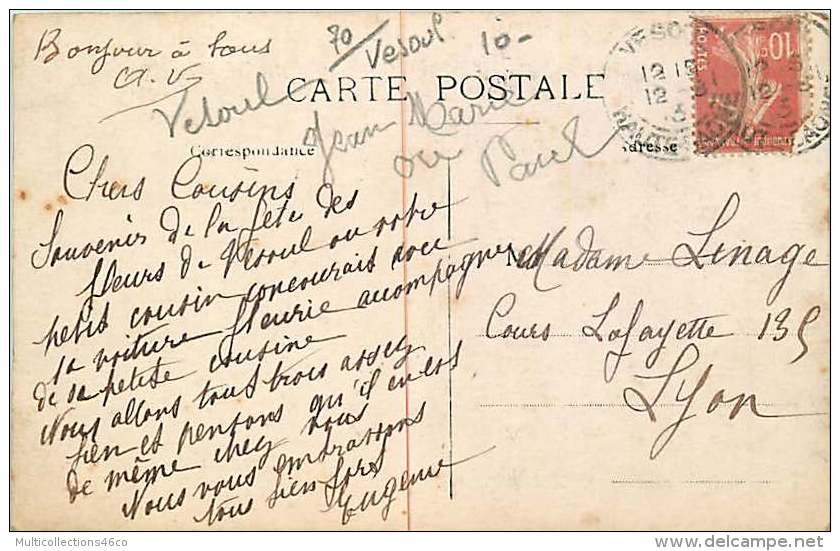 Bonjour à tous
a. V.
70
Vesoul
10-
Vesoul
CARTE POSTALE
Jean Marie
ou Parel
Correspondance
Adresse
VESOUL
HAUTE-SAONE
POSTES
10
Chers Cousins
Souvenir de la fête des
fleurs de Vesoul ou votre
petit cousin concourait avec
sa voiture fleurie accompagné
de sa petite cousine
Nous allons tous trois assez
bien et pensons qu'il en est
de même chez vous
Nous vous embrassons
tous bien fort
Eugenie
M
Madame Linage
Cours Lafayette 135
Lyon
Multicollections46co
delcampe.net